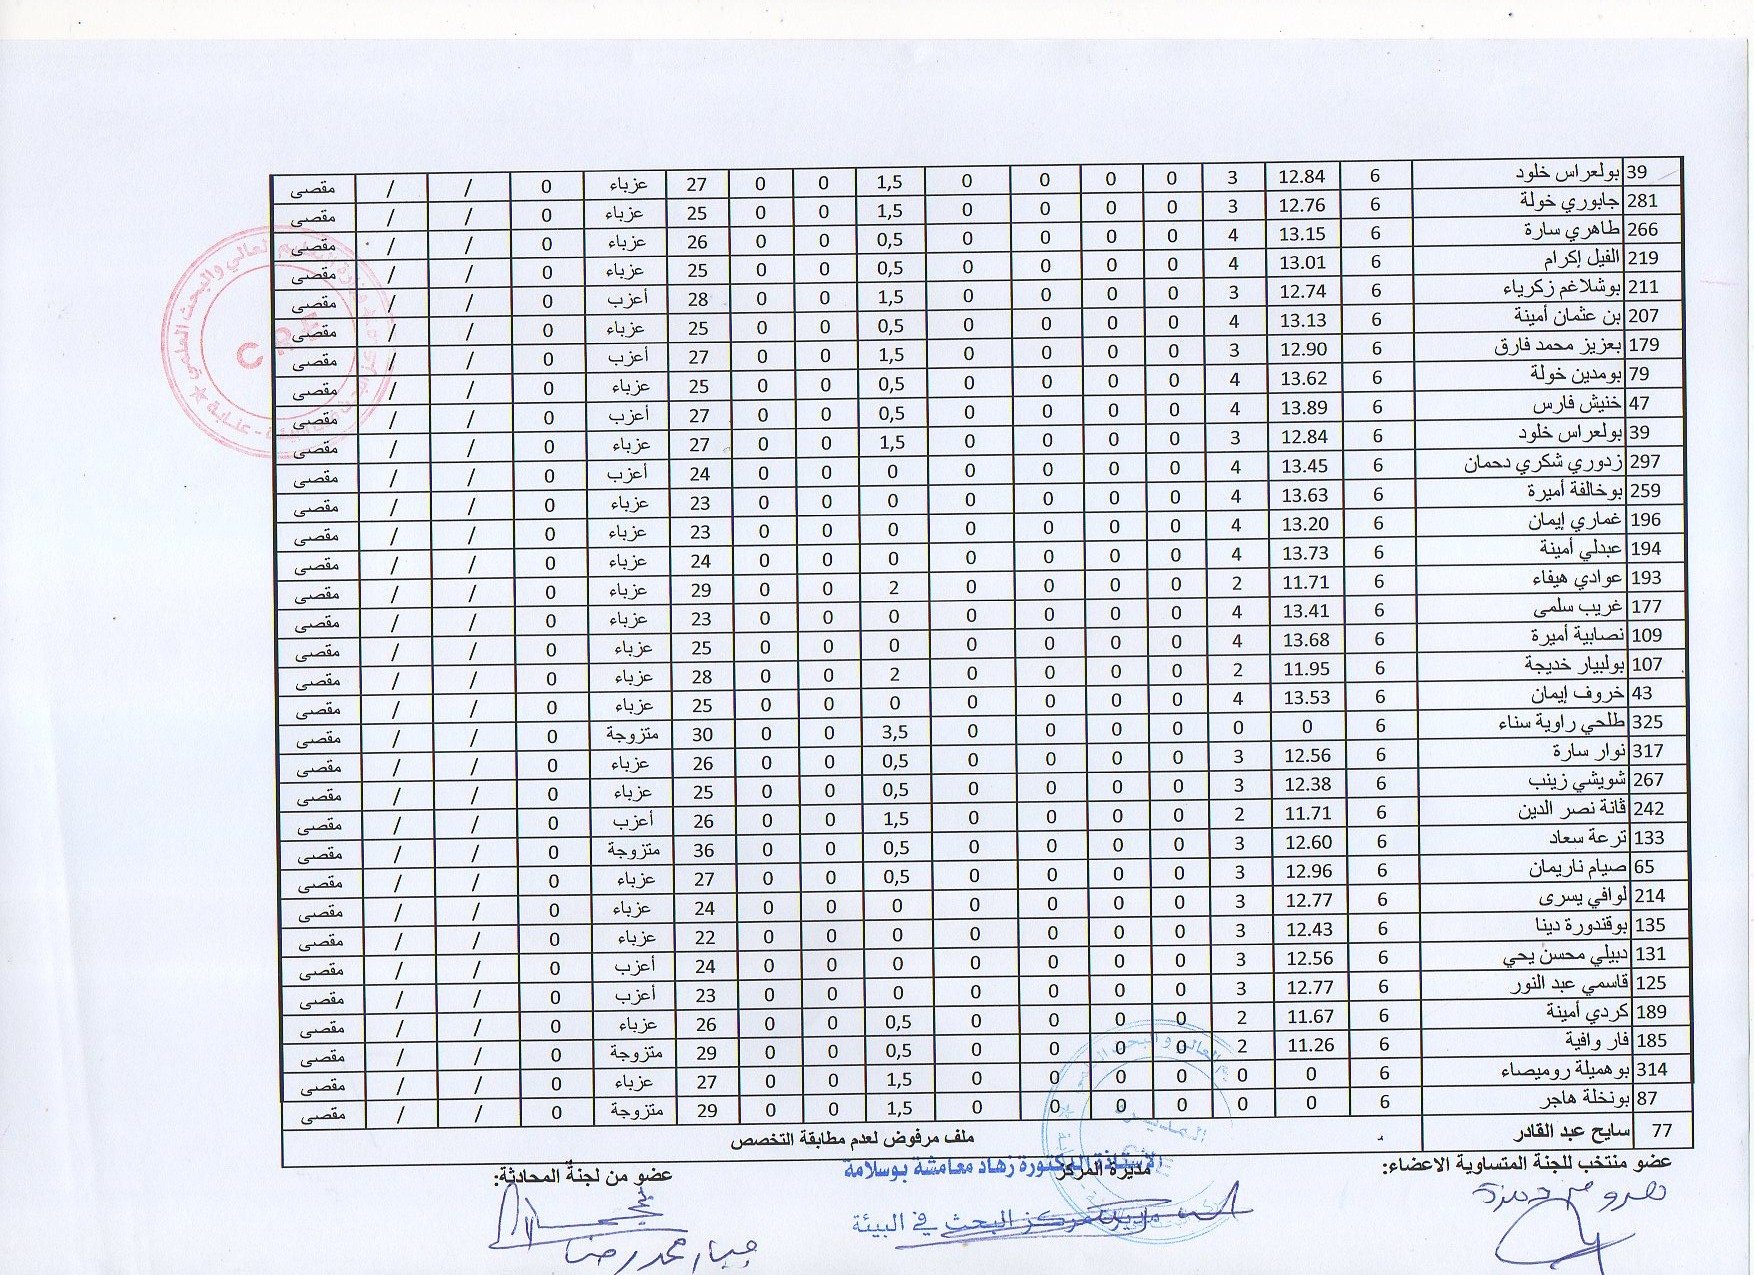 39 بولعراس خلود 6 12.84 3 0 0 0 0 1,5 0 0 27 عزباء 0 / / مقصى
281 جابوري خولة 6 12.76 3 0 0 0 0 1,5 0 0 25 عزباء 0 / / مقصى
266 طاهري سارة 6 13.15 4 0 0 0 0 0,5 0 0 26 عزباء 0 / / مقصى
219 الفيل إكرام 6 13.01 4 0 0 0 0 0,5 0 0 25 عزباء 0 / / مقصى
211 بوشلاغم زكرياء 6 12.74 3 0 0 0 0 1,5 0 0 28 أعزب 0 / / مقصى
207 بن عثمان أمينة 6 13.13 4 0 0 0 0 0,5 0 0 25 عزباء 0 / / مقصى
179 بعزيز محمد فارق 6 12.90 3 0 0 0 0 1,5 0 0 27 أعزب 0 / / مقصى
79 بومدين خولة 6 13.62 4 0 0 0 0 0,5 0 0 25 عزباء 0 / / مقصى
47 خنيش فارس 6 13.89 4 0 0 0 0 0,5 0 0 27 أعزب 0 / / مقصى
39 بولعراس خلود 6 12.84 3 0 0 0 0 1,5 0 0 27 عزباء 0 / / مقصى
297 زدوري شكري دحمان 6 13.45 4 0 0 0 0 0 0 0 24 أعزب 0 / / مقصى
259 بوخالفة أميرة 6 13.63 4 0 0 0 0 0 0 0 23 عزباء 0 / / مقصى
196 غماري إيمان 6 13.20 4 0 0 0 0 0 0 0 23 عزباء 0 / / مقصى
194 عبدلي أمينة 6 13.73 4 0 0 0 0 0 0 0 24 عزباء 0 / / مقصى
193 عوادي هيفاء 6 11.71 2 0 0 0 0 2 0 0 29 عزباء 0 / / مقصى
177 غريب سلمى 6 13.41 4 0 0 0 0 0 0 0 23 عزباء 0 / / مقصى
109 نصابية أميرة 6 13.68 4 0 0 0 0 0 0 0 25 عزباء 0 / / مقصى
107 بولبيار خديجة 6 11.95 2 0 0 0 0 2 0 0 28 عزباء 0 / / مقصى
43 خروف إيمان 6 13.53 4 0 0 0 0 0 0 0 25 عزباء 0 / / مقصى
325 طلحي راوية سناء 6 0 0 0 0 0 0 3,5 0 0 30 متزوجة 0 / / مقصى
317 نوار سارة 6 12.56 3 0 0 0 0 0,5 0 0 26 عزباء 0 / / مقصى
267 شويشي زينب 6 12.38 3 0 0 0 0 0,5 0 0 25 عزباء 0 / / مقصى
242 ڤانة نصر الدين 6 11.71 2 0 0 0 0 1,5 0 0 26 أعزب 0 / / مقصى
133 ترعة سعاد 6 12.60 3 0 0 0 0 0,5 0 0 36 متزوجة 0 / / مقصى
65 صيام ناريمان 6 12.96 3 0 0 0 0 0,5 0 0 27 عزباء 0 / / مقصى
214 لوافي يسرى 6 12.77 3 0 0 0 0 0 0 0 24 عزباء 0 / / مقصى
135 بوقندورة دينا 6 12.43 3 0 0 0 0 0 0 0 22 عزباء 0 / / مقصى
131 دبيلي محسن يحي 6 12.56 3 0 0 0 0 0 0 0 24 أعزب 0 / / مقصى
125 قاسمي عبد النور 6 12.77 3 0 0 0 0 0 0 0 23 أعزب 0 / / مقصى
189 كردي أمينة 6 11.67 2 0 0 0 0 0,5 0 0 26 عزباء 0 / / مقصى
185 فار وافية 6 11.26 2 0 0 0 0 0,5 0 0 29 متزوجة 0 / / مقصى
314 بوهميلة روميصاء 6 0 0 0 0 0 0 1,5 0 0 27 عزباء 0 / / مقصى
87 بونخلة هاجر 6 0 0 0 0 0 0 1,5 0 0 29 متزوجة 0 / / مقصى
77 سايح عبد القادر ملف مرفوض لعدم مطابقة التخصص
عضو منتخب للجنة المتساوية الاعضاء: مديرة المركز عضو من لجنة المحادثة:
الأستاذة الدكتورة زهاد معامشة بوسلامة
مديرة مركز البحث في البيئة